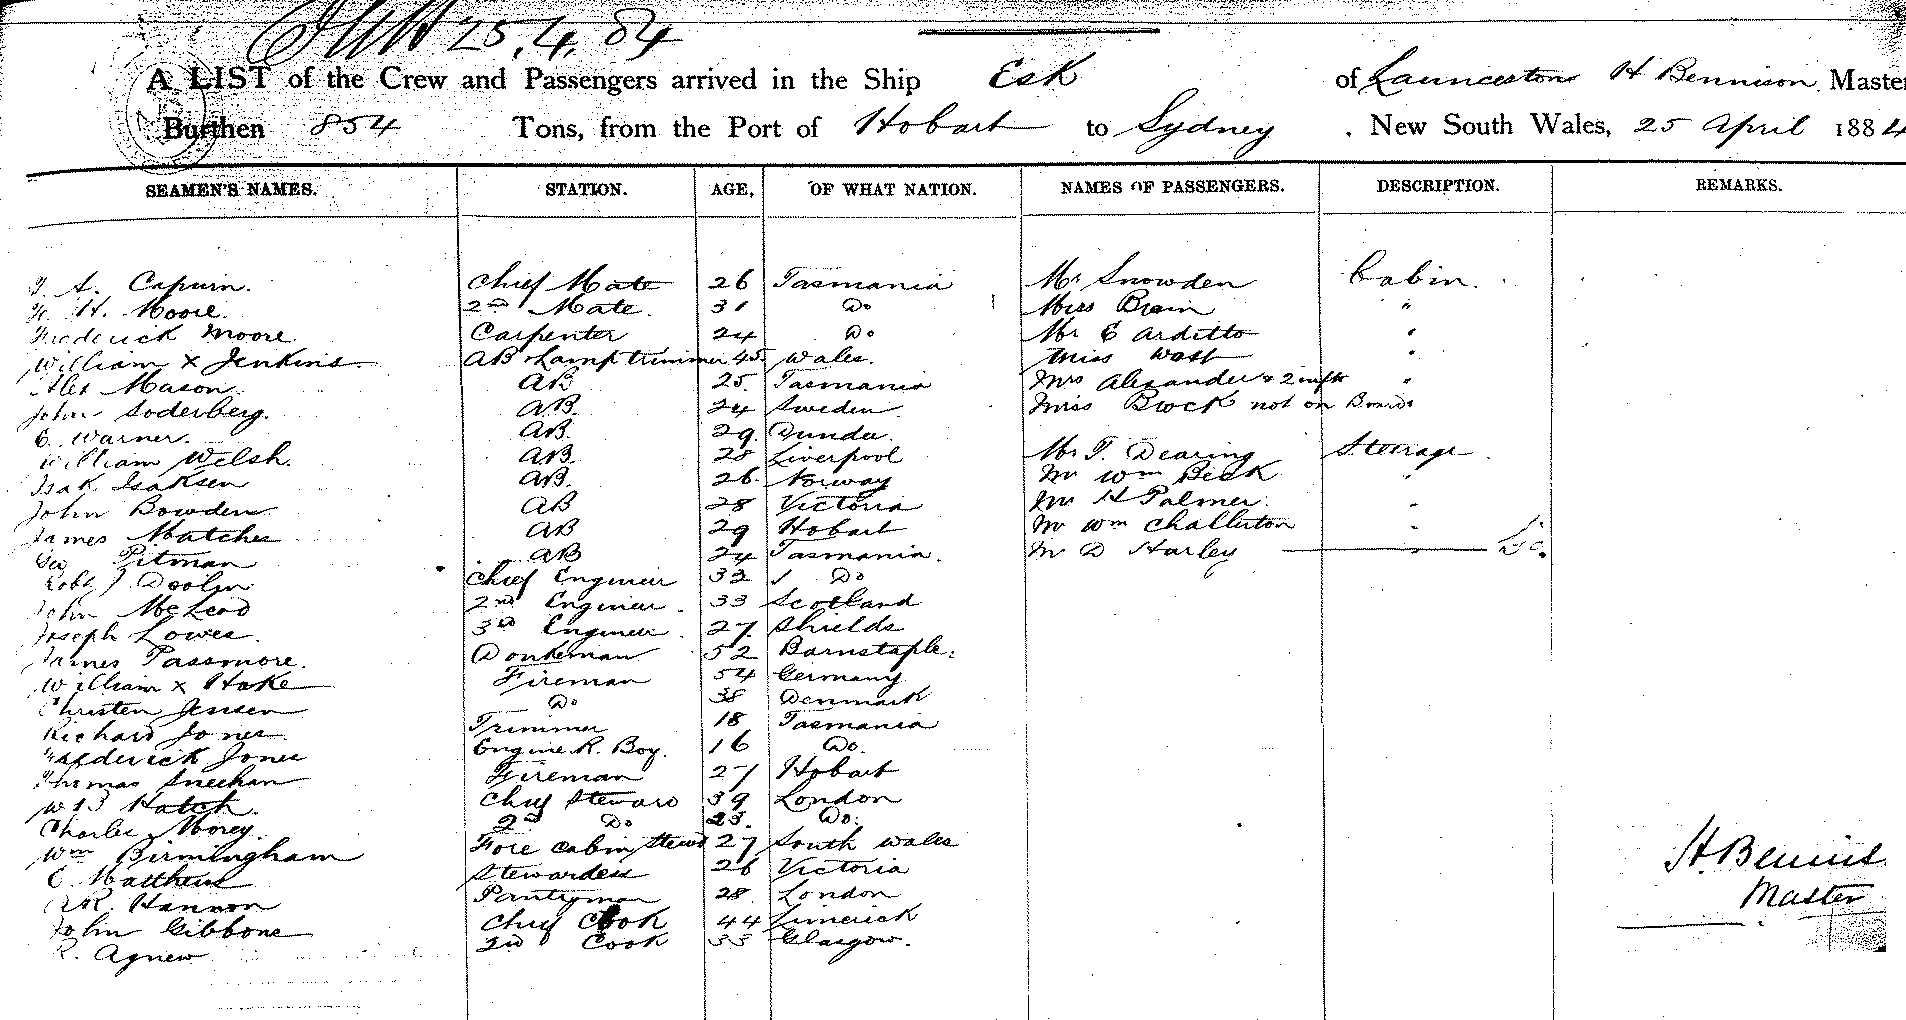 25.4.84
A LIST of the Crew and Passengers arrived in the Ship Esk of Launceston H Bennison Master
Burthen 854 Tons, from the Port of Hobart to Sydney, New South Wales, 25 April 1884
SEAMEN'S NAMES. STATION. AGE, OF WHAT NATION. NAMES OF PASSENGERS. DESCRIPTION. REMARKS.
A. Capurn. Chief Mate 26 Tasmania Mr Snowden Cabin.
H. Moore. 2nd Mate. 31 Do Miss Brain "
Frederick Moore Carpenter 24 Do Mr E Arditto "
William x Jenkins AB & Lamp trimmer 45 Wales. Miss Watt "
Alex Mason. AB 25. Tasmania Mrs Alexander & 2 infts "
John Soderberg. AB. 24 Sweden. Miss Brock not on Board
C. Warner. AB. 29. Dundee.
William Welsh. AB. 28 Liverpool Mr T. Dearing Steerage
Isak Isaksen AB. 26. Norway Mr Wm Beck "
John Bowden AB 28 Victoria Mr H Palmer. "
James Matches AB 29 Hobart Mr Wm Challerton "
Geo Pitman AB 24 Tasmania. Mr D Harley "
Robt J Doolin Chief Engineer 32 Do
John McLeod 2nd Engineer. 33 Scotland
Joseph Lowes. 3rd Engineer. 27. Shields
James Passmore. Donkeman 52 Barnstaple.
William x Hake Fireman 54 Germany
Christen Jensen Do 38 Denmark
Richard Jones Trimmer 18 Tasmania
Frederick Jones Engine R. Boy. 16 Do.
Thomas Sheehan Fireman 27 Hobart
Hatch. Chief Steward 39 London
Charles Morey. 2nd Do 23. Do.
Wm Birmingham Fore cabin Stewd 27 South Wales
E. Matthews Stewardess 26 Victoria
R. Hannon Pantryman 28 London
John Gibbons Chief Cook 44 Limerick
R. Agnew 2nd Cook 33 Glasgow.
H. Bennison
Master